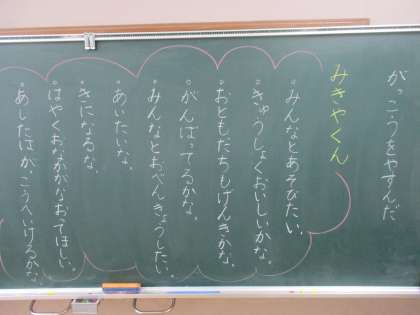 がっこうをやすんだ
みきやくん
。みんなとあそびたい。
。きゅうしょくおいしいかな。
。おともだちもげんきかな。
。がんばってるかな。
。みんなとおべんきょうしたい。
。あいたいな。
。きになるな。
。はやくおなかがなおってほしい。
。あしたはがっこうへいけるかな。